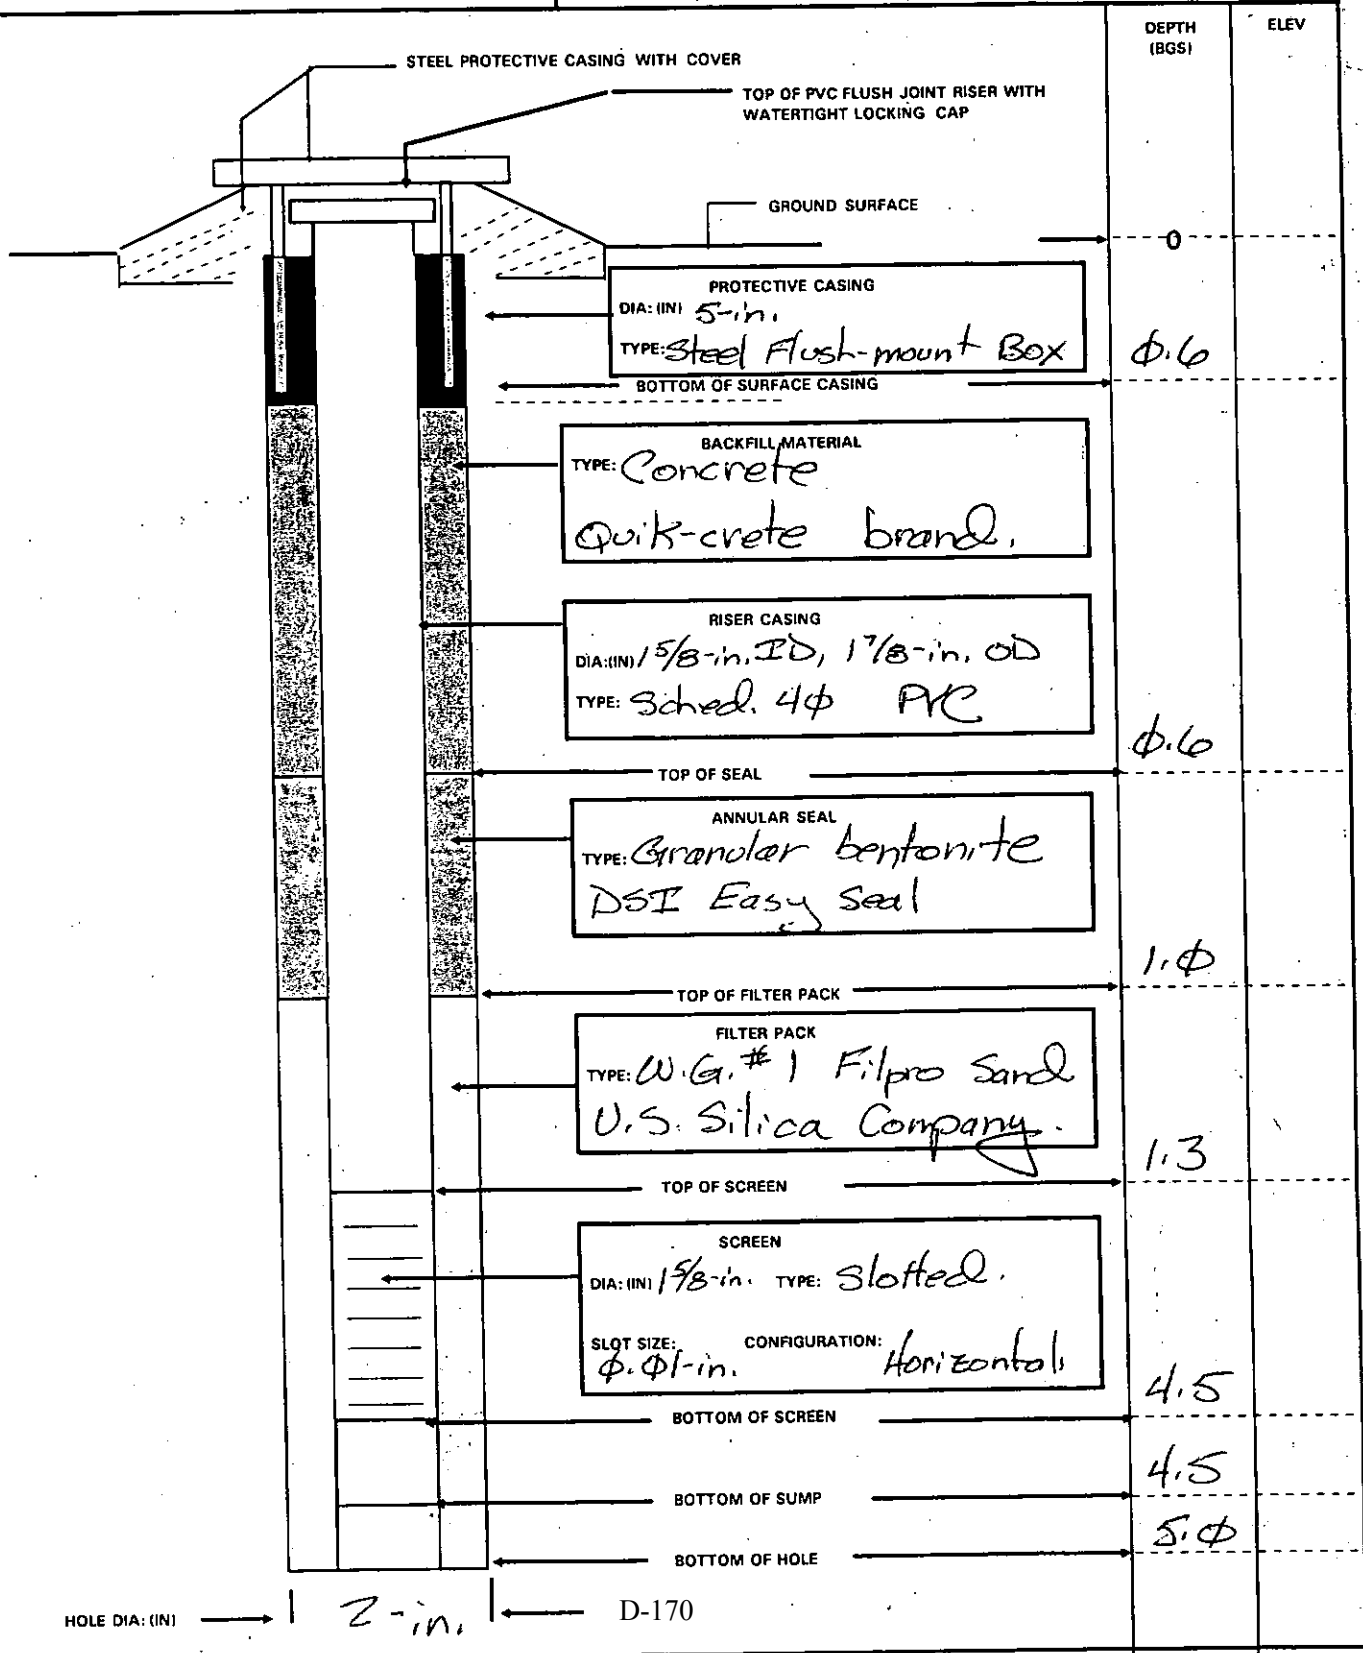 DEPTH
(BGS)
ELEV
STEEL PROTECTIVE CASING WITH COVER
TOP OF PVC FLUSH JOINT RISER WITH
WATERTIGHT LOCKING CAP
GROUND SURFACE
0
PROTECTIVE CASING
DIA: (IN) 5-in.
TYPE: Steel Flush-mount Box
0.6
BOTTOM OF SURFACE CASING
BACKFILL MATERIAL
TYPE: Concrete
Quik-crete brand.
RISER CASING
DIA:(IN) 1 5/8-in. ID, 1 7/8-in. OD
TYPE: Sched. 40 PVC
0.6
TOP OF SEAL
ANNULAR SEAL
TYPE: Granular bentonite
DSI Easy Seal
1.0
TOP OF FILTER PACK
FILTER PACK
TYPE: W.G. #1 Filpro Sand
U.S. Silica Company.
1.3
TOP OF SCREEN
SCREEN
DIA: (IN) 1 5/8-in. TYPE: Slotted.
SLOT SIZE: 0.01-in. CONFIGURATION: Horizontal.
4.5
BOTTOM OF SCREEN
4.5
BOTTOM OF SUMP
5.0
BOTTOM OF HOLE
HOLE DIA: (IN) 2-in.
D-170